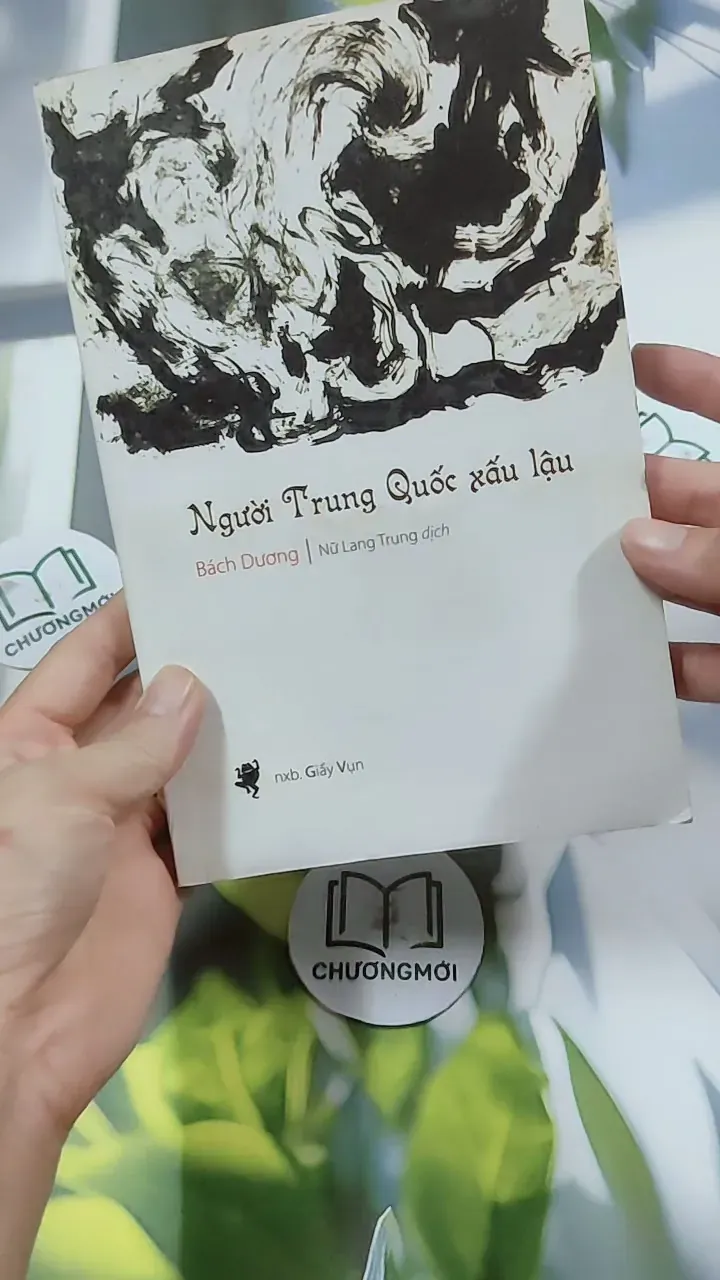 Người Trung Quốc xấu lậu
Bách Dương | Nữ Lang Trung dịch
nxb. Giấy Vụn
CHƯƠNGMỚI
CHƯƠNGMỚI